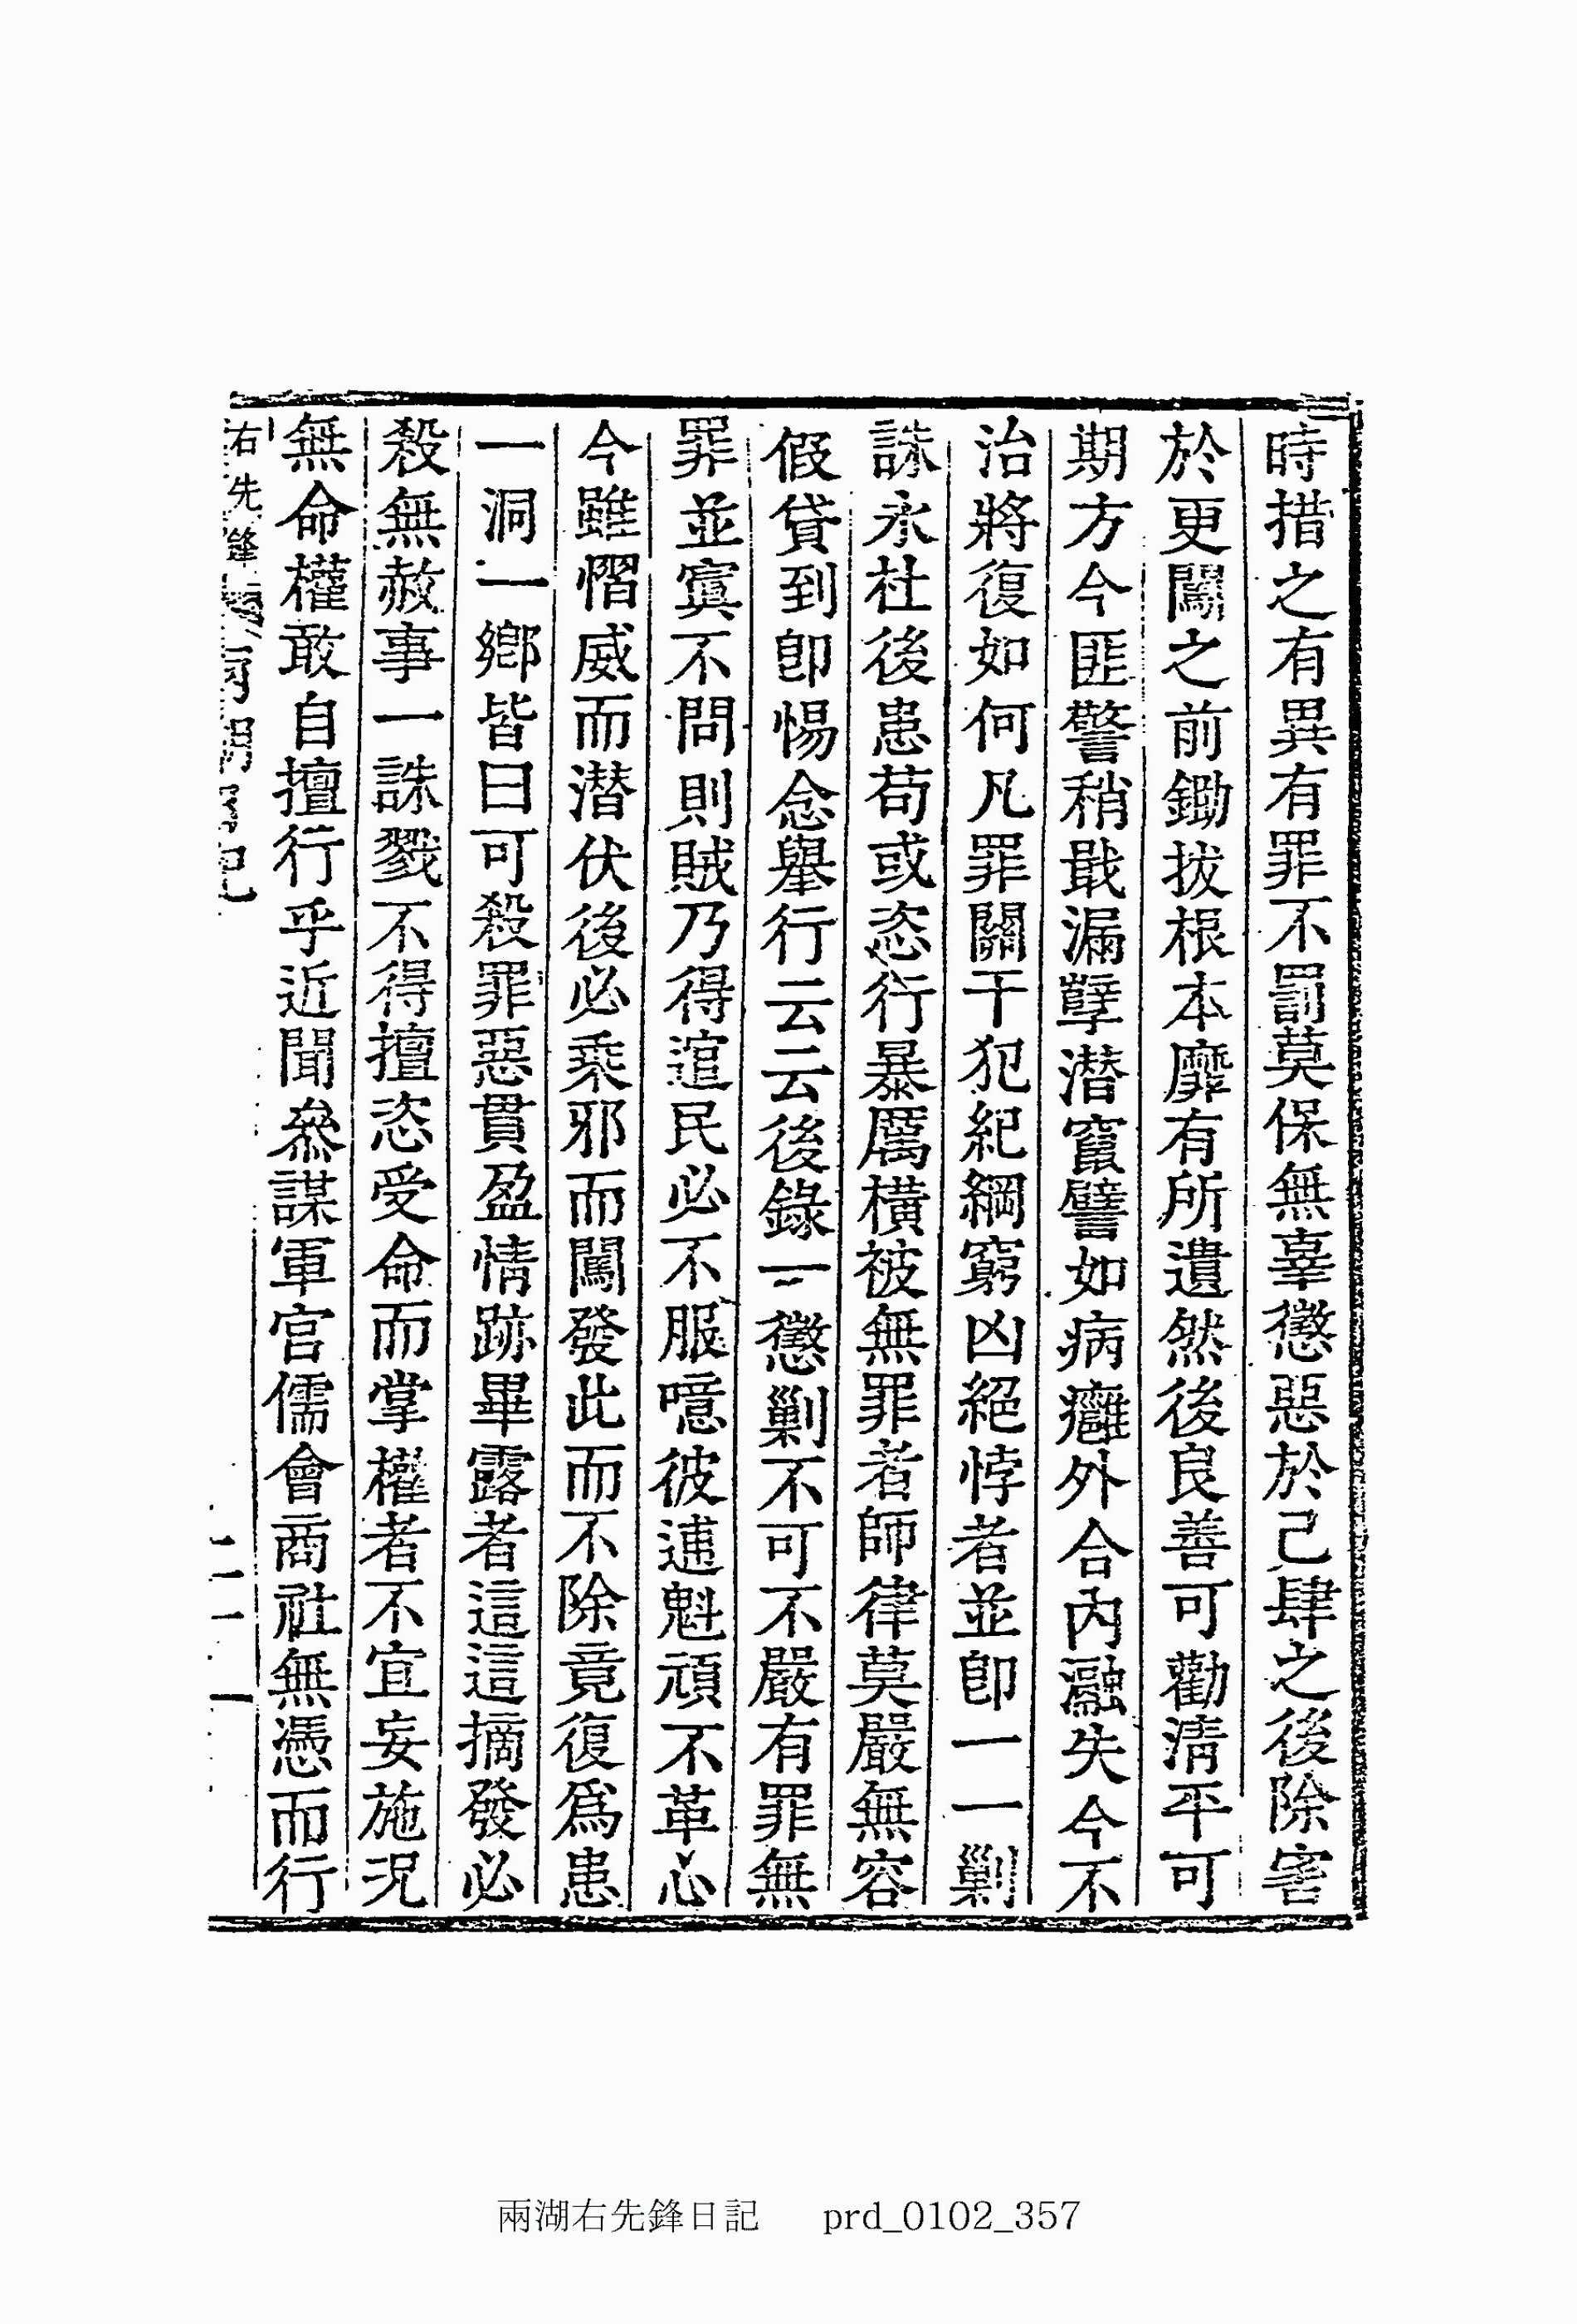 時措之有異有罪不罰莫保無辜懲惡於己肆之後除害
於更闖之前鋤拔根本靡有所遺然後良善可勸淸平可
期方今匪警稍戢漏孼潛竄譬如病癰外合內瀜失今不
治將復如何凡罪關干犯紀綱窮凶絕悖者並卽一一剿
誅永杜後患苟或恣行暴厲橫被無罪者師律莫嚴無容
假貸到卽惕念擧行云云後錄一懲剿不可不嚴有罪無
罪並寘不問則賊乃得逭民必不服噫彼逋魁頑不革心
今雖慴威而潛伏後必乘邪而闖發此而不除竟復爲患
一洞一鄕皆曰可殺罪惡貫盈情跡畢露者這這摘發必
殺無赦事一誅戮不得擅恣受命而掌權者不宜妄施况
無命權敢自擅行乎近聞叅謀軍官儒會商社無憑而行
右先鋒 兩湖日記
二一
兩湖右先鋒日記 prd_0102_357